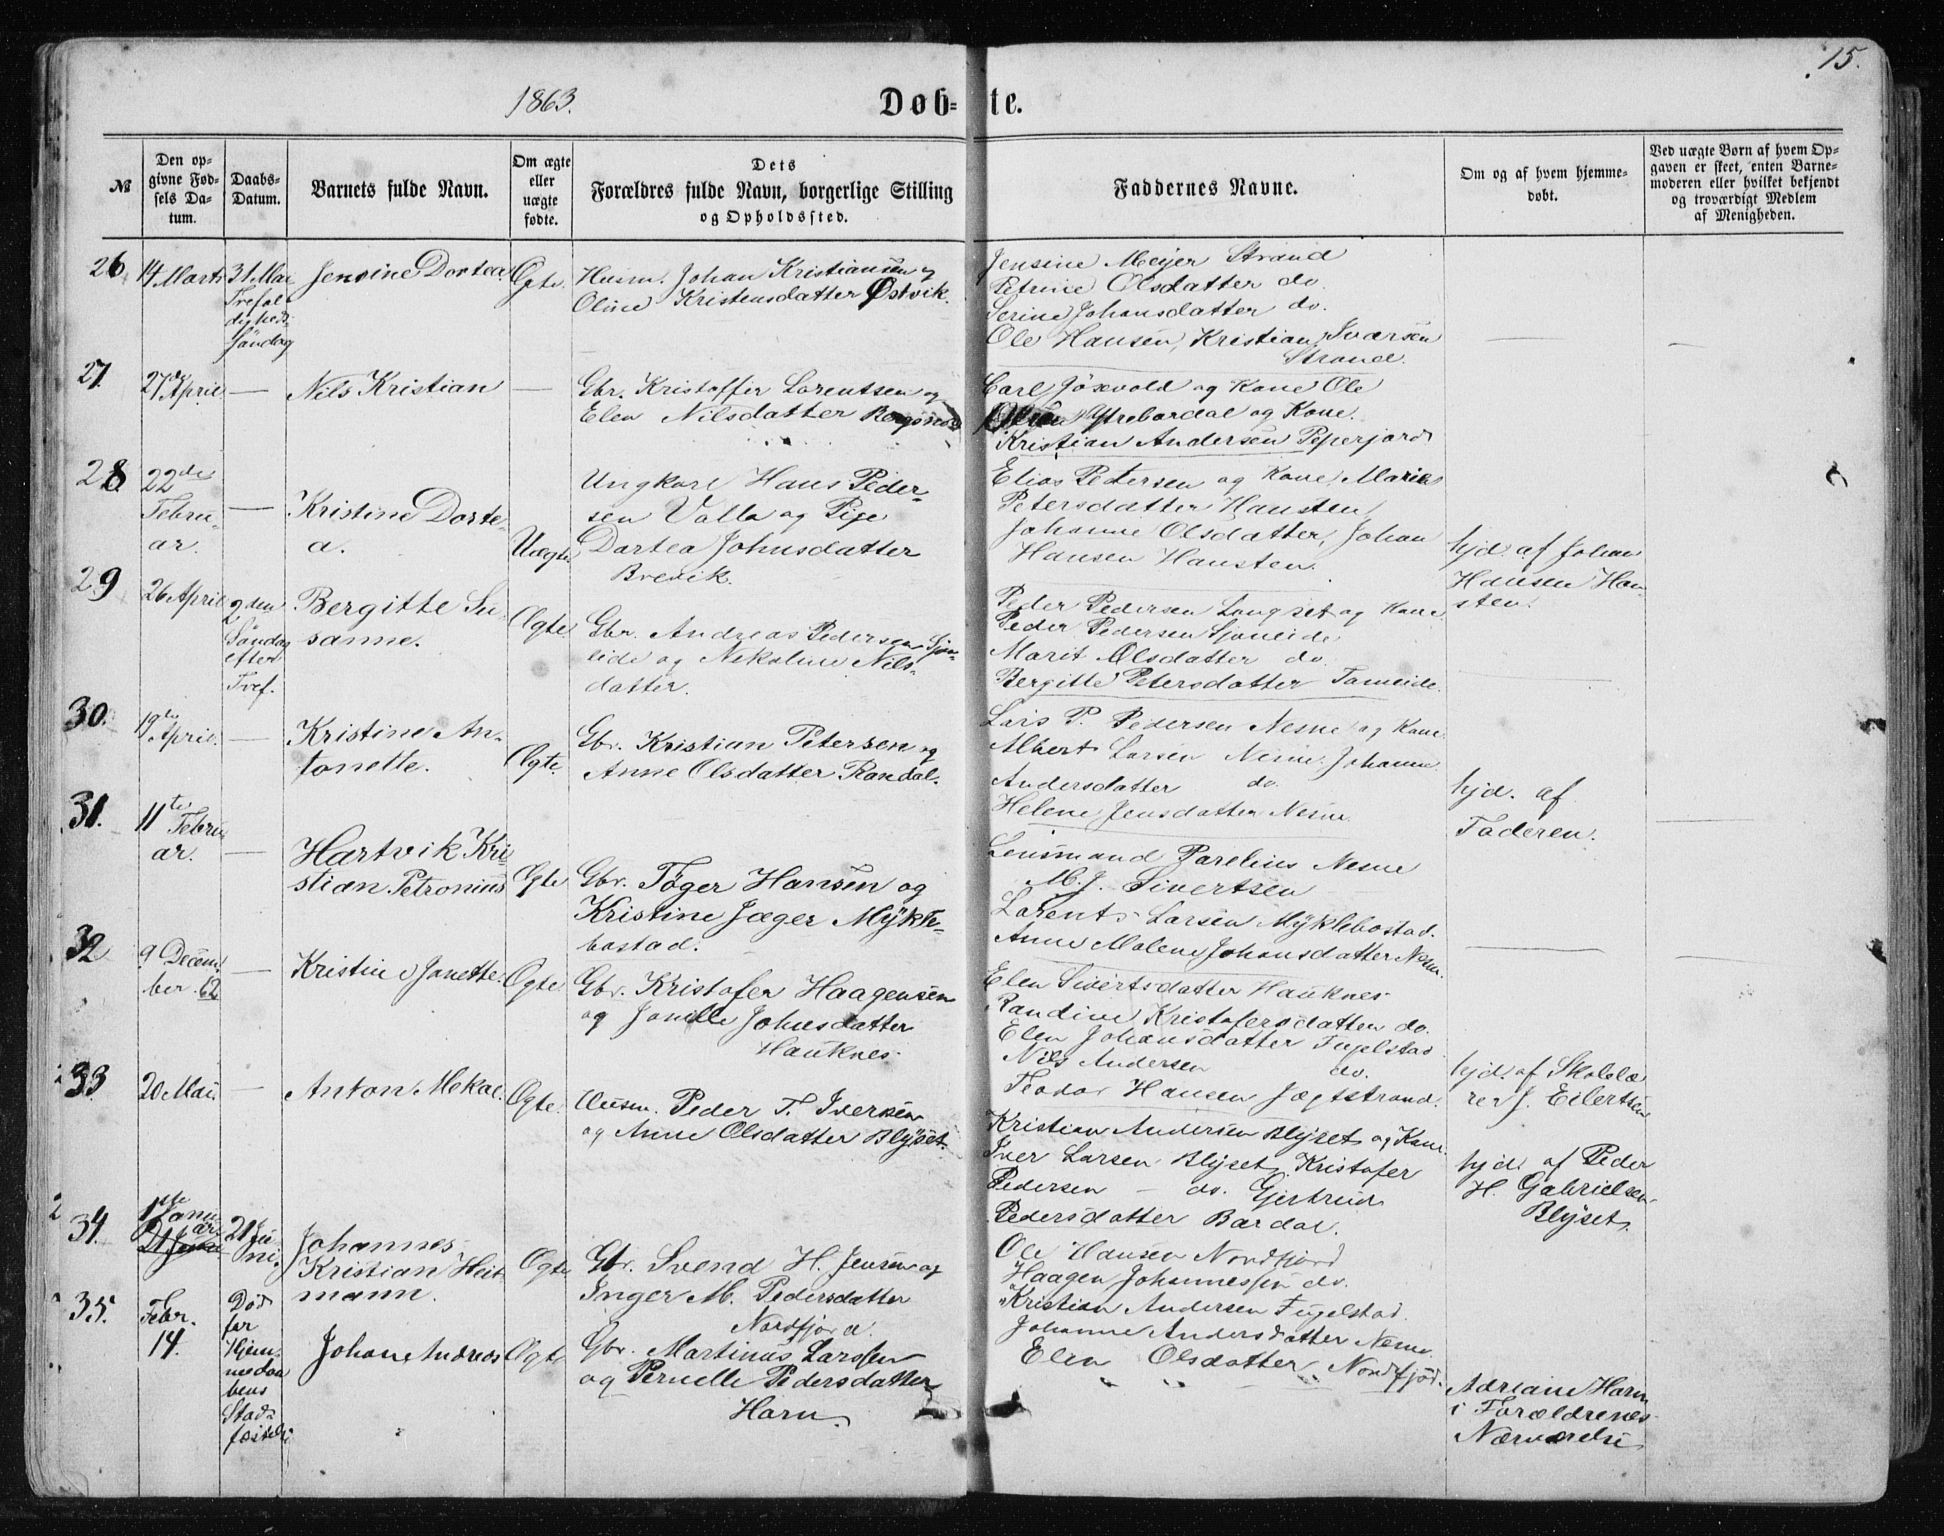 15.
1863.
Døb-te.
№
Den op-
givne Fød-
sels Da-
tum.
Daabs-
Datum.
Barnets fulde Navn.
Om ægte
eller
uægte
fødte.
Dets
Forældres fulde Navn, borgerlige Stilling
og Opholdssted.
Faddernes Navne.
Om og af hvem hjemme-
døbt.
Ved uægte Børn af hvem Op-
gaven er skeet, enten Barne-
moderen eller hvilket bekjendt
og troværdigt Medlem
af Menigheden.
26
14 Marts
31 Mai
Trefol
digheds
Søndag
Jensine Dortea
Ægte
Husm. Johan Kristiansen og
Oline Kristensdatter Østvik.
Jensine Meyer Strand
Petrine Olsdatter do.
Serine Johansdatter do.
Ole Hansen, Kristian Iversen
Strand.
27.
27de April
—
Nils Kristian
—
Gbr. Kristoffer Lorentsen og
Elen Nilsdatter
Carl Jøsvold og Kone Ole
Ytrebardal og Kone.
Kristian Andersen
28
22de
Febru-
ar.
—
Kristine Dorte-
a.
Uægte
Ungkarl Hans Peder-
sen Valla og Pige
Dortea Johnsdatter
Brevik.
Elias Petersen og Kone, Marie
Petersdatter Hansten,
Johanne Olsdatter, Johan
Hansen Hansten.
hjd. af Johan
Hansen Han
sten.
29
26 April
2den
Søndag
efter
Tref.
Bergitte Su-
sanne.
Ægte
Gbr. Andreas Pedersen Sjon-
eide og Nikoline Nils-
datter.
Peder Pedersen Langset og Kone,
Peder Pedersen Sjoneide
Marit Olsdatter do.
Bergitte Petersdatter
30.
19de
April.
—
Kristine An-
tonette.
Ægte.
Gbr. Kristian Petersen og
Anne Olsdatter Randal.
Lars P. Pedersen Nesne og Kone
Albert Larsen Nesne. Johanne
Andersdatter do.
Helene Jensdatter Nesne.
hjd. af
Faderen.
31.
11te
Febru
ar.
—
Hartvik Kri
stian Petronius
Ægte
Gbr. Tøger Hansen og
Kristine Jæger Mykle-
bostad.
Lensmand Parelius Nesne
M. J. Sivertsen
Lorents Larsen Myklebostad.
Anne Malene Johansdatter Nesne.
32
9 Decem
ber 62
—
Kristine Janette.
Ægte
Gbr. Kristofer Haagensen
og Jonille Johnsdatter
Hauknes.
Elen Sivertsdatter Hauknes.
Randine Kristofersdatter do.
Elen Johansdatter Fugelstad
Nils Andersen do.
Teodor Hansen Jægtstrand.
hjd. af Skolelæ
rer J. Eilertsen
33
20 Mai.
—
Anton Mekal
Ægte.
Husm. Peder T. Iversen
og Anne Olsdatter Blyset.
Kristian Andersen Blyset og Kone.
Iver Larsen Blyset, Kristofer
Pedersen — do. Gjertrud
Pedersdatter Bardal.
hjd. af Peder
H. Gabrielsen
Blyset.
34.
1ste
Janu
ar
21 Ju
ni.
Johannes
Kristian Heit
mann.
Ægte
Gbr. Svend H. Jensen og
Inger M. Pedersdatter
Nordfjord.
Ole Hansen Nordfjord
Haagen Johannessen do.
Kristian Andersen Fugelstad.
Johanne Andersdatter Nesne.
Elen Olsdatter Nordfjord.
35.
Febr.
14.
Død
før
Hjem-
medaa
bens
Stad-
fæstelse
Johan Andreas
Ægte
Gbr. Martinus Larssen
og Pernelle Pedersdatter
Harn.
Adriane Harn
i Forældrenes
Nærværelse